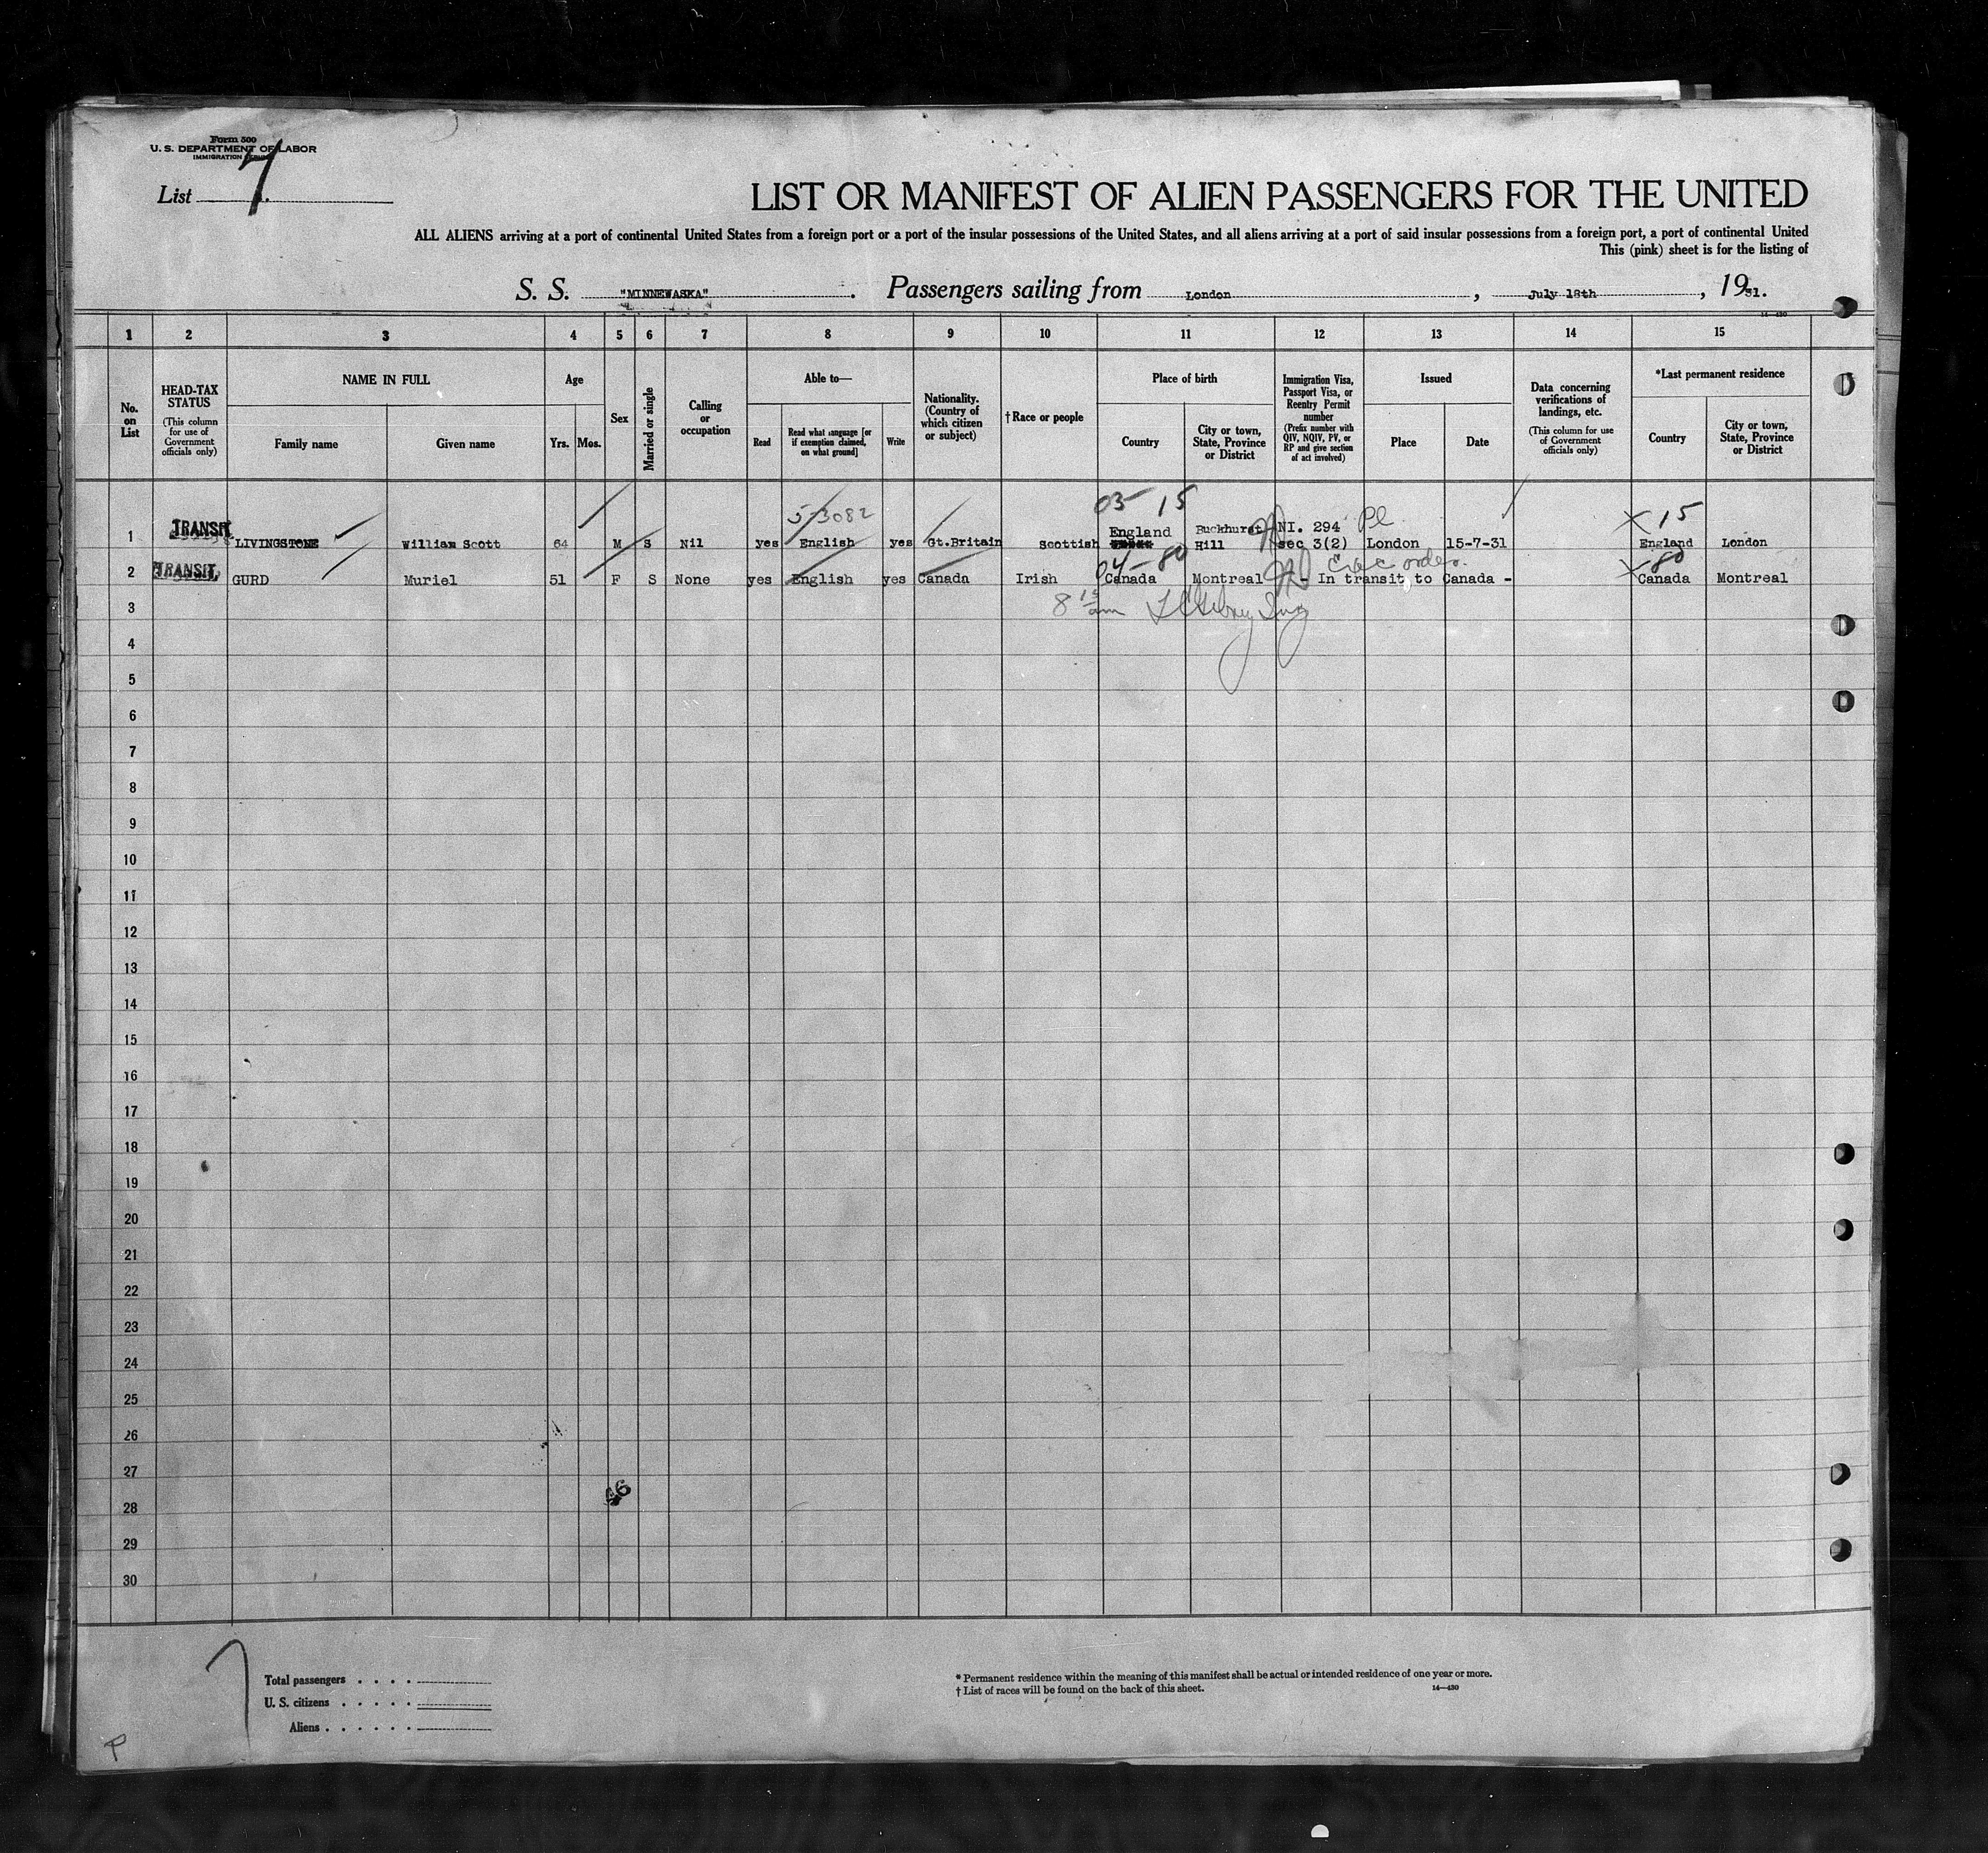 Form 500
U. S. DEPARTMENT OF LABOR
IMMIGRATION
List 7
LIST OR MANIFEST OF ALIEN PASSENGERS FOR THE UNITED
ALL ALIENS arriving at a port of continental United States from a foreign port or a port of the insular possessions of the United States, and all aliens arriving at a port of said insular possessions from a foreign port, a port of continental United
This (pink) sheet is for the listing of
S. S. "MINNEWASKA" . Passengers sailing from London , July 18th , 1931.
14-430
1 2 3 4 5 6 7 8 9 10 11 12 13 14 15
No. on List
HEAD-TAX STATUS
(This column for use of Government officials only)
NAME IN FULL
Family name
Given name
Age
Yrs. Mos.
Sex
Married or single
Calling or occupation
Able to—
Read
Read what language [or if exemption claimed, on what ground]
Write
Nationality. (Country of which citizen or subject)
†Race or people
Place of birth
Country
City or town, State, Province or District
Immigration Visa, Passport Visa, or Reentry Permit number
(Prefix number with QIV, NQIV, PV, or RP and give section of act involved)
Issued
Place
Date
Data concerning verifications of landings, etc.
(This column for use of Government officials only)
*Last permanent residence
Country
City or town, State, Province or District
5-3082 03 15 X 15
1 TRANSIT LIVINGSTONE William Scott 64 M S Nil yes English yes Gt.Britain Scottish England Buckhurst Hill NI. 294 sec 3(2) London 15-7-31 England London
04-80 order. X 80
2 TRANSIT GURD Muriel 51 F S None yes English yes Canada Irish Canada Montreal - In transit to Canada - Canada Montreal
3 8 15 am
4
5
6
7
8
9
10
11
12
13
14
15
16
17
18
19
20
21
22
23
24
25
26
27
28
29
30
Total passengers . . . .
U. S. citizens . . . . .
Aliens . . . . . .
* Permanent residence within the meaning of this manifest shall be actual or intended residence of one year or more.
† List of races will be found on the back of this sheet.
14—430
P